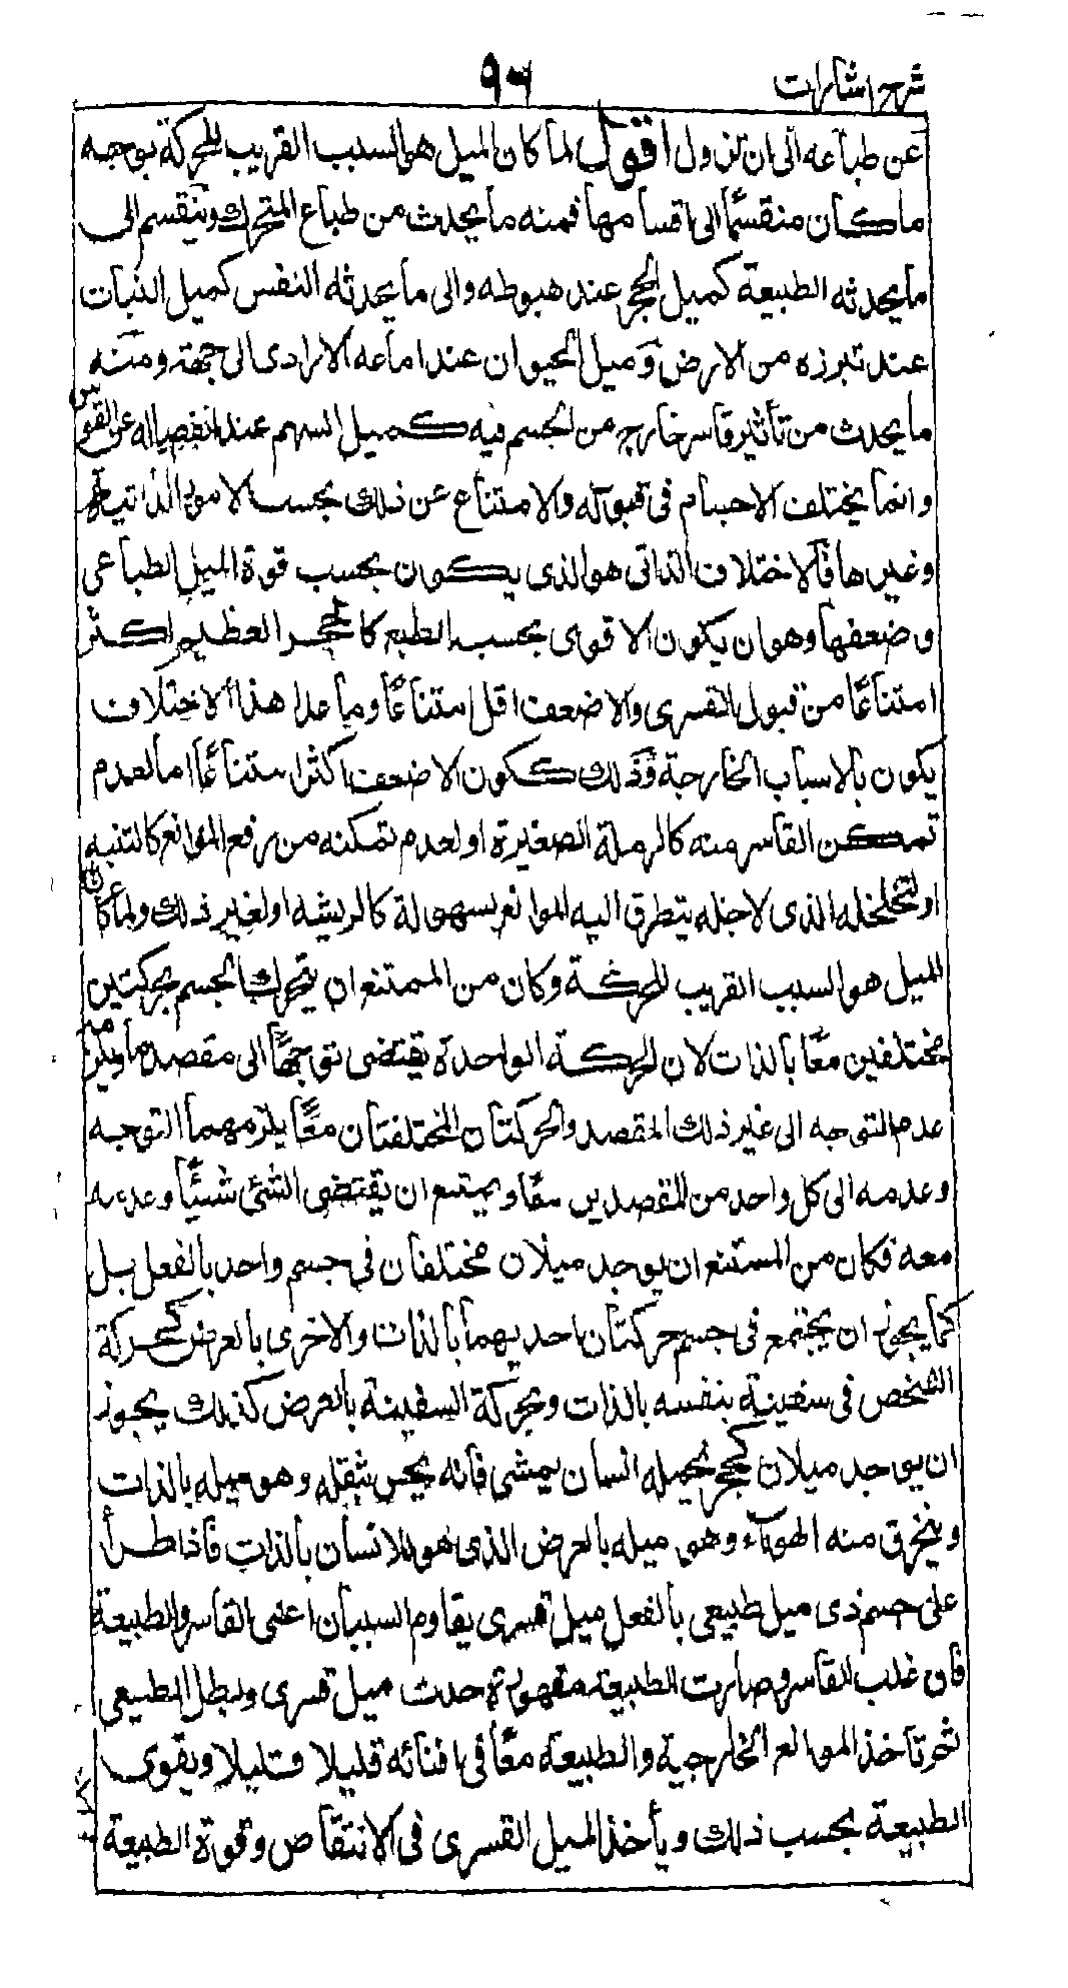 شرح اشارات
٩٦
عن طباعه الى ان تزول اقول لما كان الميل هو السبب القريب للحركة بوجه
ما كان منقسمًا الى اقسامها فمنه ما يحدث من طباع المتحرك وينقسم الى
ما يحدثه الطبيعة كميل الحجر عند هبوطه والى ما يحدثه النفس كميل النبات
عند تبرزه من الارض وميل الحيوان عند اندفاعه الارادى الى جهة ومنه
ما يحدث من تأثير قاسر خارج من الجسم فيه كميل السهم عند انفصاله عن القوس
وانما يختلف الاجسام فى قبوله والامتناع عن ذلك بحسب الامور الذاتية
وغيرها فالاختلاف الذاتى هو الذى يكون بحسب قوة الميل الطباعى
وضعفها وهو ان يكون الاقوى بحسب الطبع كالحجر العظيم اكثر
امتناعًا من قبول القسرى والاضعف اقل امتناعًا وما عدا هذا الاختلاف
يكون بالاسباب الخارجة وذلك ككون الاضعف اكثر امتناعًا اما لعدم
تمكن القاسر منه كالرملة الصغيرة او لعدم تمكنه من رفع الموانع كالتنبه
او لتخلخله الذى لاجله يتطرق اليه الموانع بسهولة كالريشه او لغير ذلك ولما كان
الميل هو السبب القريب للحركة وكان من الممتنع ان يتحرك الجسم بحركتين
مختلفين معًا بالذات لان الحركة الواحدة يقتضى توجهًا الى مقصد ما ويلزمه
عدم التوجه الى غير ذلك المقصد والحركتان المختلفتان معًا يلزمهما التوجه
وعدمه الى كل واحد من المقصدين معًا ويمتنع ان يقتضى الشئ شيئًا وعدمه
معه فكان من الممتنع ان يوجد ميلان مختلفان فى جسم واحد بالفعل بل
كما يجوز ان يجتمع فى جسم حركتان احديهما بالذات والاخرى بالعرض كحركة
الشخص فى سفينة بنفسه بالذات وبحركة السفينة بالعرض كذلك يجوز
ان يوجد ميلان كحجر يحمله انسان يمشى فانه يحس بثقله وهو ميله بالذات
وينخرق منه الهواء وهو ميله بالعرض الذى هو للانسان بالذات فاذا طرأ
على جسم ذى ميل طبيعى بالفعل ميل قسرى يقاوم السببان اعنى القاسر والطبيعة
فان غلب القاسر وصارت الطبيعة مقهورة حدث ميل قسرى وبطل الطبيعى
ثم تاخذ الموانع الخارجية والطبيعة معًا فى افنائه قليلا قليلا ويقوى
الطبيعة بحسب ذلك وياخذ الميل القسرى فى الانتقاص وقوة الطبيعة